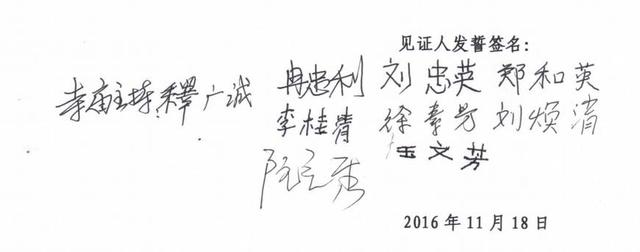 见证人发誓签名:
寺庙主持释广诚 冉忠利 刘忠英 郑和英
李桂清 徐素芳 刘焕清
文芳
2016年11月18日